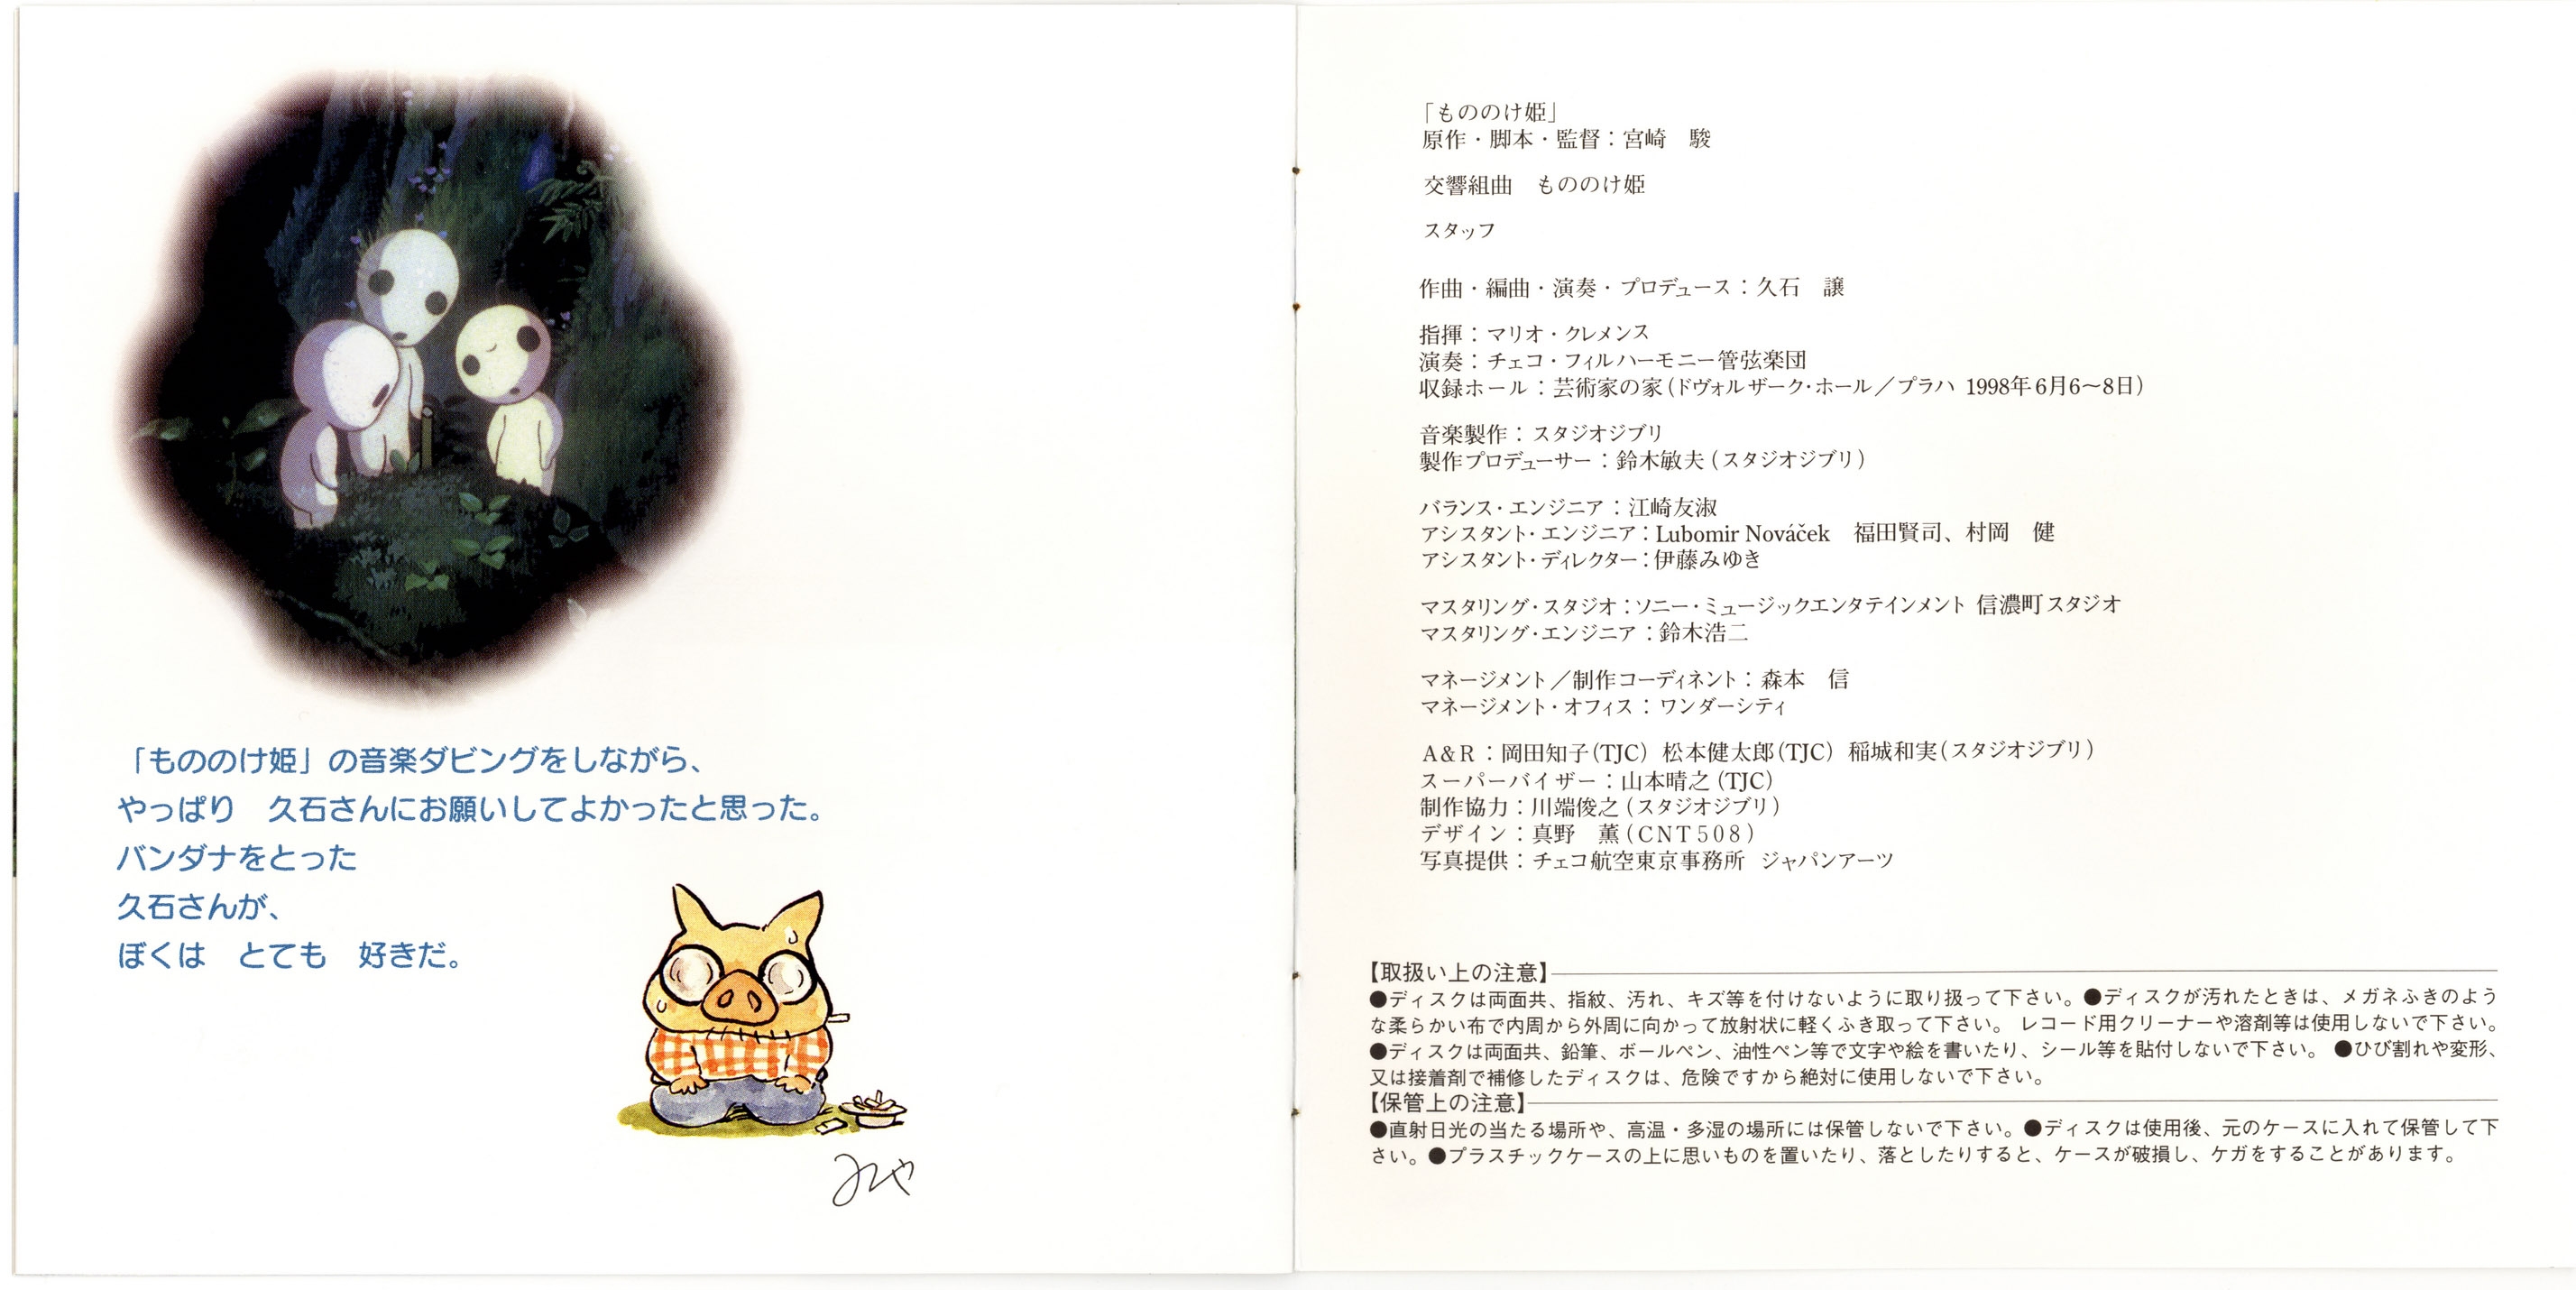 「もののけ姫」の音楽ダビングをしながら、
やっぱり　久石さんにお願いしてよかったと思った。
バンダナをとった
久石さんが、
ぼくは　とても　好きだ。
みや
「もののけ姫」
原作・脚本・監督：宮崎　駿
交響組曲　もののけ姫
スタッフ
作曲・編曲・演奏・プロデュース：久石　譲
指揮：マリオ・クレメンス
演奏：チェコ・フィルハーモニー管弦楽団
収録ホール：芸術家の家（ドヴォルザーク・ホール／プラハ 1998年6月6〜8日）
音楽製作：スタジオジブリ
製作プロデューサー：鈴木敏夫（スタジオジブリ）
バランス・エンジニア：江崎友淑
アシスタント・エンジニア：Lubomir Nováček　福田賢司、村岡　健
アシスタント・ディレクター：伊藤みゆき
マスタリング・スタジオ：ソニー・ミュージックエンタテインメント 信濃町スタジオ
マスタリング・エンジニア：鈴木浩二
マネージメント／制作コーディネント：森本　信
マネージメント・オフィス：ワンダーシティ
A&R：岡田知子（TJC）松本健太郎（TJC）稲城和実（スタジオジブリ）
スーパーバイザー：山本晴之（TJC）
制作協力：川端俊之（スタジオジブリ）
デザイン：真野　薫（CNT508）
写真提供：チェコ航空東京事務所　ジャパンアーツ
【取扱い上の注意】
●ディスクは両面共、指紋、汚れ、キズ等を付けないように取り扱って下さい。●ディスクが汚れたときは、メガネふきのよう
な柔らかい布で内周から外周に向かって放射状に軽くふき取って下さい。 レコード用クリーナーや溶剤等は使用しないで下さい。
●ディスクは両面共、鉛筆、ボールペン、油性ペン等で文字や絵を書いたり、シール等を貼付しないで下さい。 ●ひび割れや変形、
又は接着剤で補修したディスクは、危険ですから絶対に使用しないで下さい。
【保管上の注意】
●直射日光の当たる場所や、高温・多湿の場所には保管しないで下さい。●ディスクは使用後、元のケースに入れて保管して下
さい。●プラスチックケースの上に思いものを置いたり、落としたりすると、ケースが破損し、ケガをすることがあります。